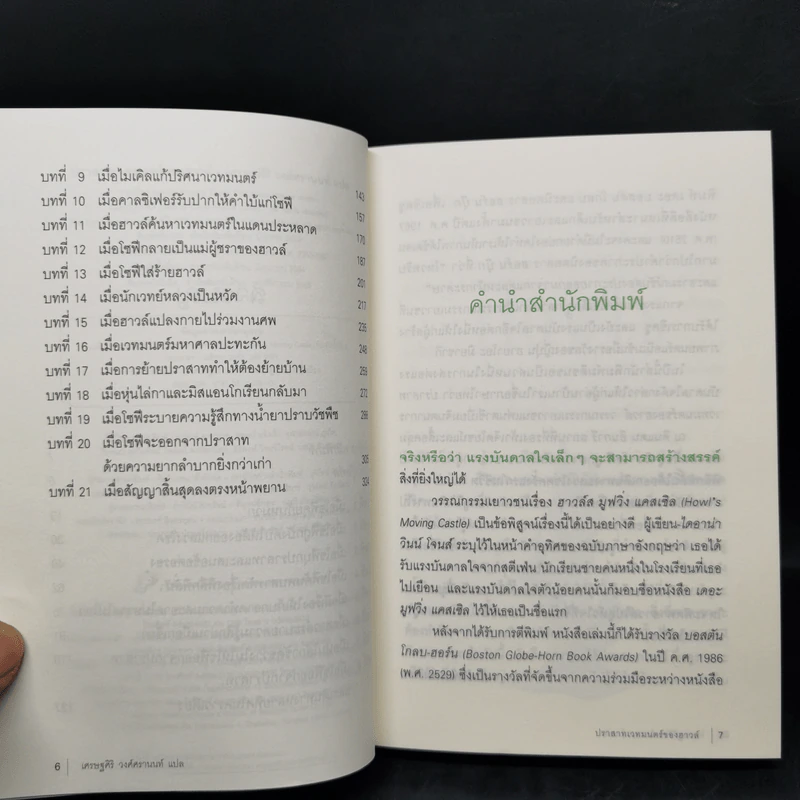 บทที่ 9 เมื่อไมเคิลแก้ปริศนาเวทมนตร์ 143
บทที่ 10 เมื่อคาลซิเฟอร์รับปากให้คำใบ้แก่โซฟี 157
บทที่ 11 เมื่อฮาวล์ค้นหาเวทมนตร์ในแดนประหลาด 170
บทที่ 12 เมื่อโซฟีกลายเป็นแม่ผู้ชราของฮาวล์ 187
บทที่ 13 เมื่อโซฟีใส่ร้ายฮาวล์ 201
บทที่ 14 เมื่อนักเวทย์หลวงเป็นหวัด 217
บทที่ 15 เมื่อฮาวล์แปลงกายไปร่วมงานศพ 235
บทที่ 16 เมื่อเวทมนตร์มหาศาลปะทะกัน 248
บทที่ 17 เมื่อการย้ายปราสาททำให้ต้องย้ายบ้าน
บทที่ 18 เมื่อหุ่นไล่กาและมิสแองโกเรียนกลับมา 272
บทที่ 19 เมื่อโซฟีระบายความรู้สึกทางน้ำยาปราบวัชพืช
บทที่ 20 เมื่อโซฟีจะออกจากปราสาท
ด้วยความยากลำบากยิ่งกว่าเก่า
บทที่ 21 เมื่อสัญญาสิ้นสุดลงตรงหน้าพยาน
6 เศรษฐศิริ วงศ์ศรานนท์ แปล
คำนำสำนักพิมพ์
จริงหรือว่า แรงบันดาลใจเล็กๆ จะสามารถสร้างสรรค์
สิ่งที่ยิ่งใหญ่ได้
วรรณกรรมเยาวชนเรื่อง ฮาวล์ส มูฟวิ่ง แคสเซิล (Howl's
Moving Castle) เป็นข้อพิสูจน์เรื่องนี้ได้เป็นอย่างดี ผู้เขียน-ไดอาน่า
วินน์ โจนส์ ระบุไว้ในหน้าคำอุทิศของฉบับภาษาอังกฤษว่า เธอได้
รับแรงบันดาลใจจากสตีเฟน นักเรียนชายคนหนึ่งในโรงเรียนที่เธอ
ไปเยือน และแรงบันดาลใจตัวน้อยคนนั้นก็มอบชื่อหนังสือ เดอะ
มูฟวิ่ง แคสเซิล ไว้ให้เธอเป็นชื่อแรก
หลังจากได้รับการตีพิมพ์ หนังสือเล่มนี้ก็ได้รับรางวัล บอสตัน
โกลบ-ฮอร์น (Boston Globe-Horn Book Awards) ในปี ค.ศ. 1986
(พ.ศ. 2529) ซึ่งเป็นรางวัลที่จัดขึ้นจากความร่วมมือระหว่างหนังสือ
ปราสาทเวทมนตร์ของฮาวล์ 7